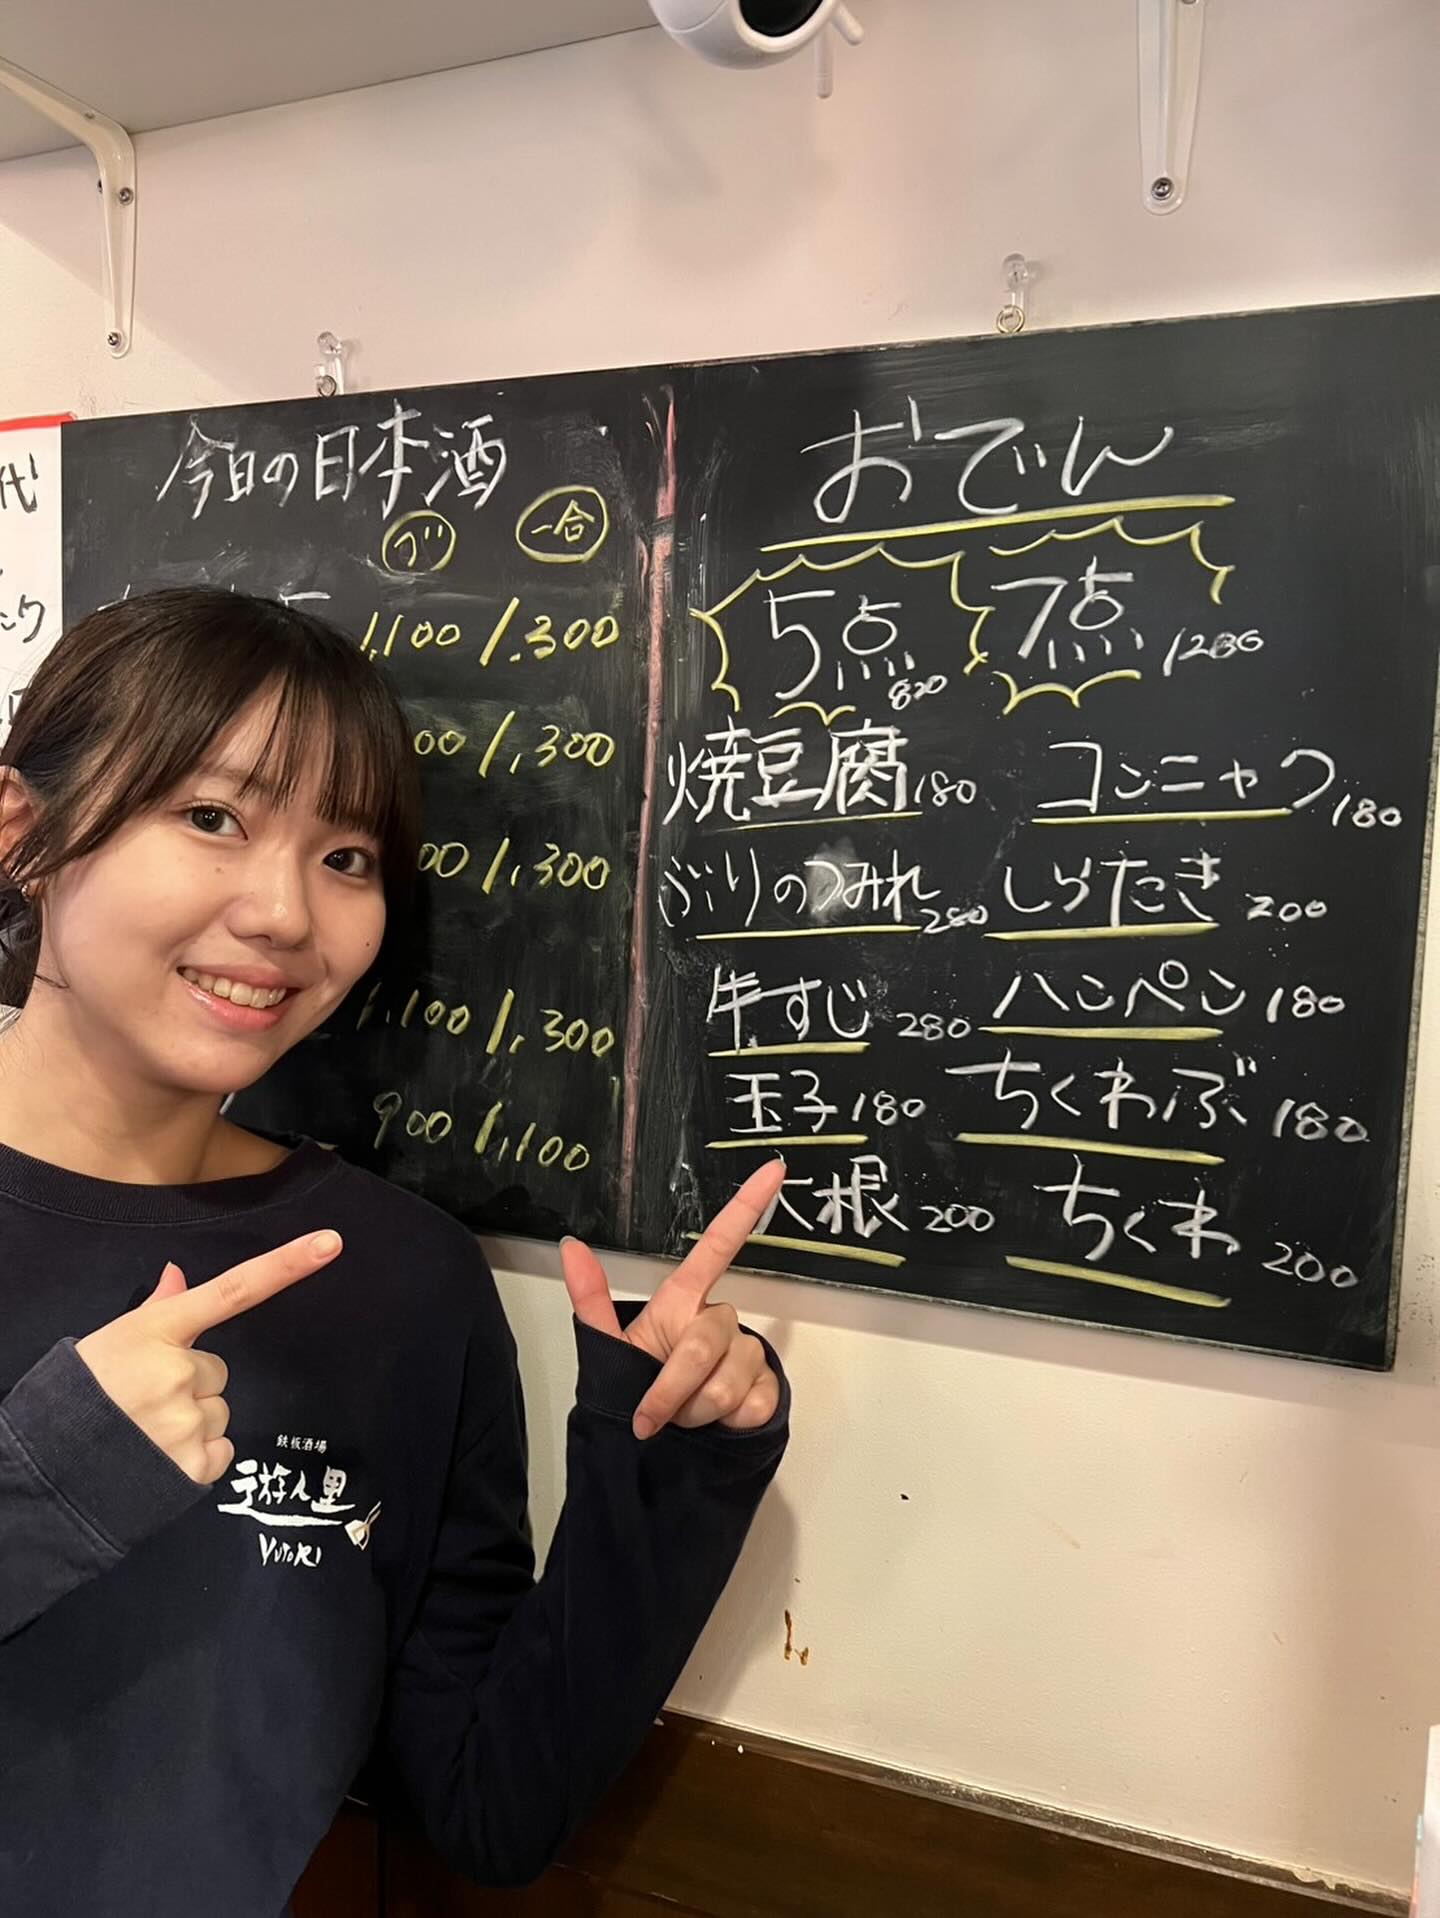 代
ック
今日の日本酒
グ 一合
1,100 / 1,300
00 / 1,300
00 / 1,300
1,100 / 1,300
900 / 1,100
おでん
5点 820 7点 1280
焼豆腐 180 コンニャク 180
ぶりのつみれ 280 しらたき 200
牛すじ 280 ハンペン 180
玉子 180 ちくわぶ 180
大根 200 ちくわ 200
鉄板酒場
遊人里
YUTORI